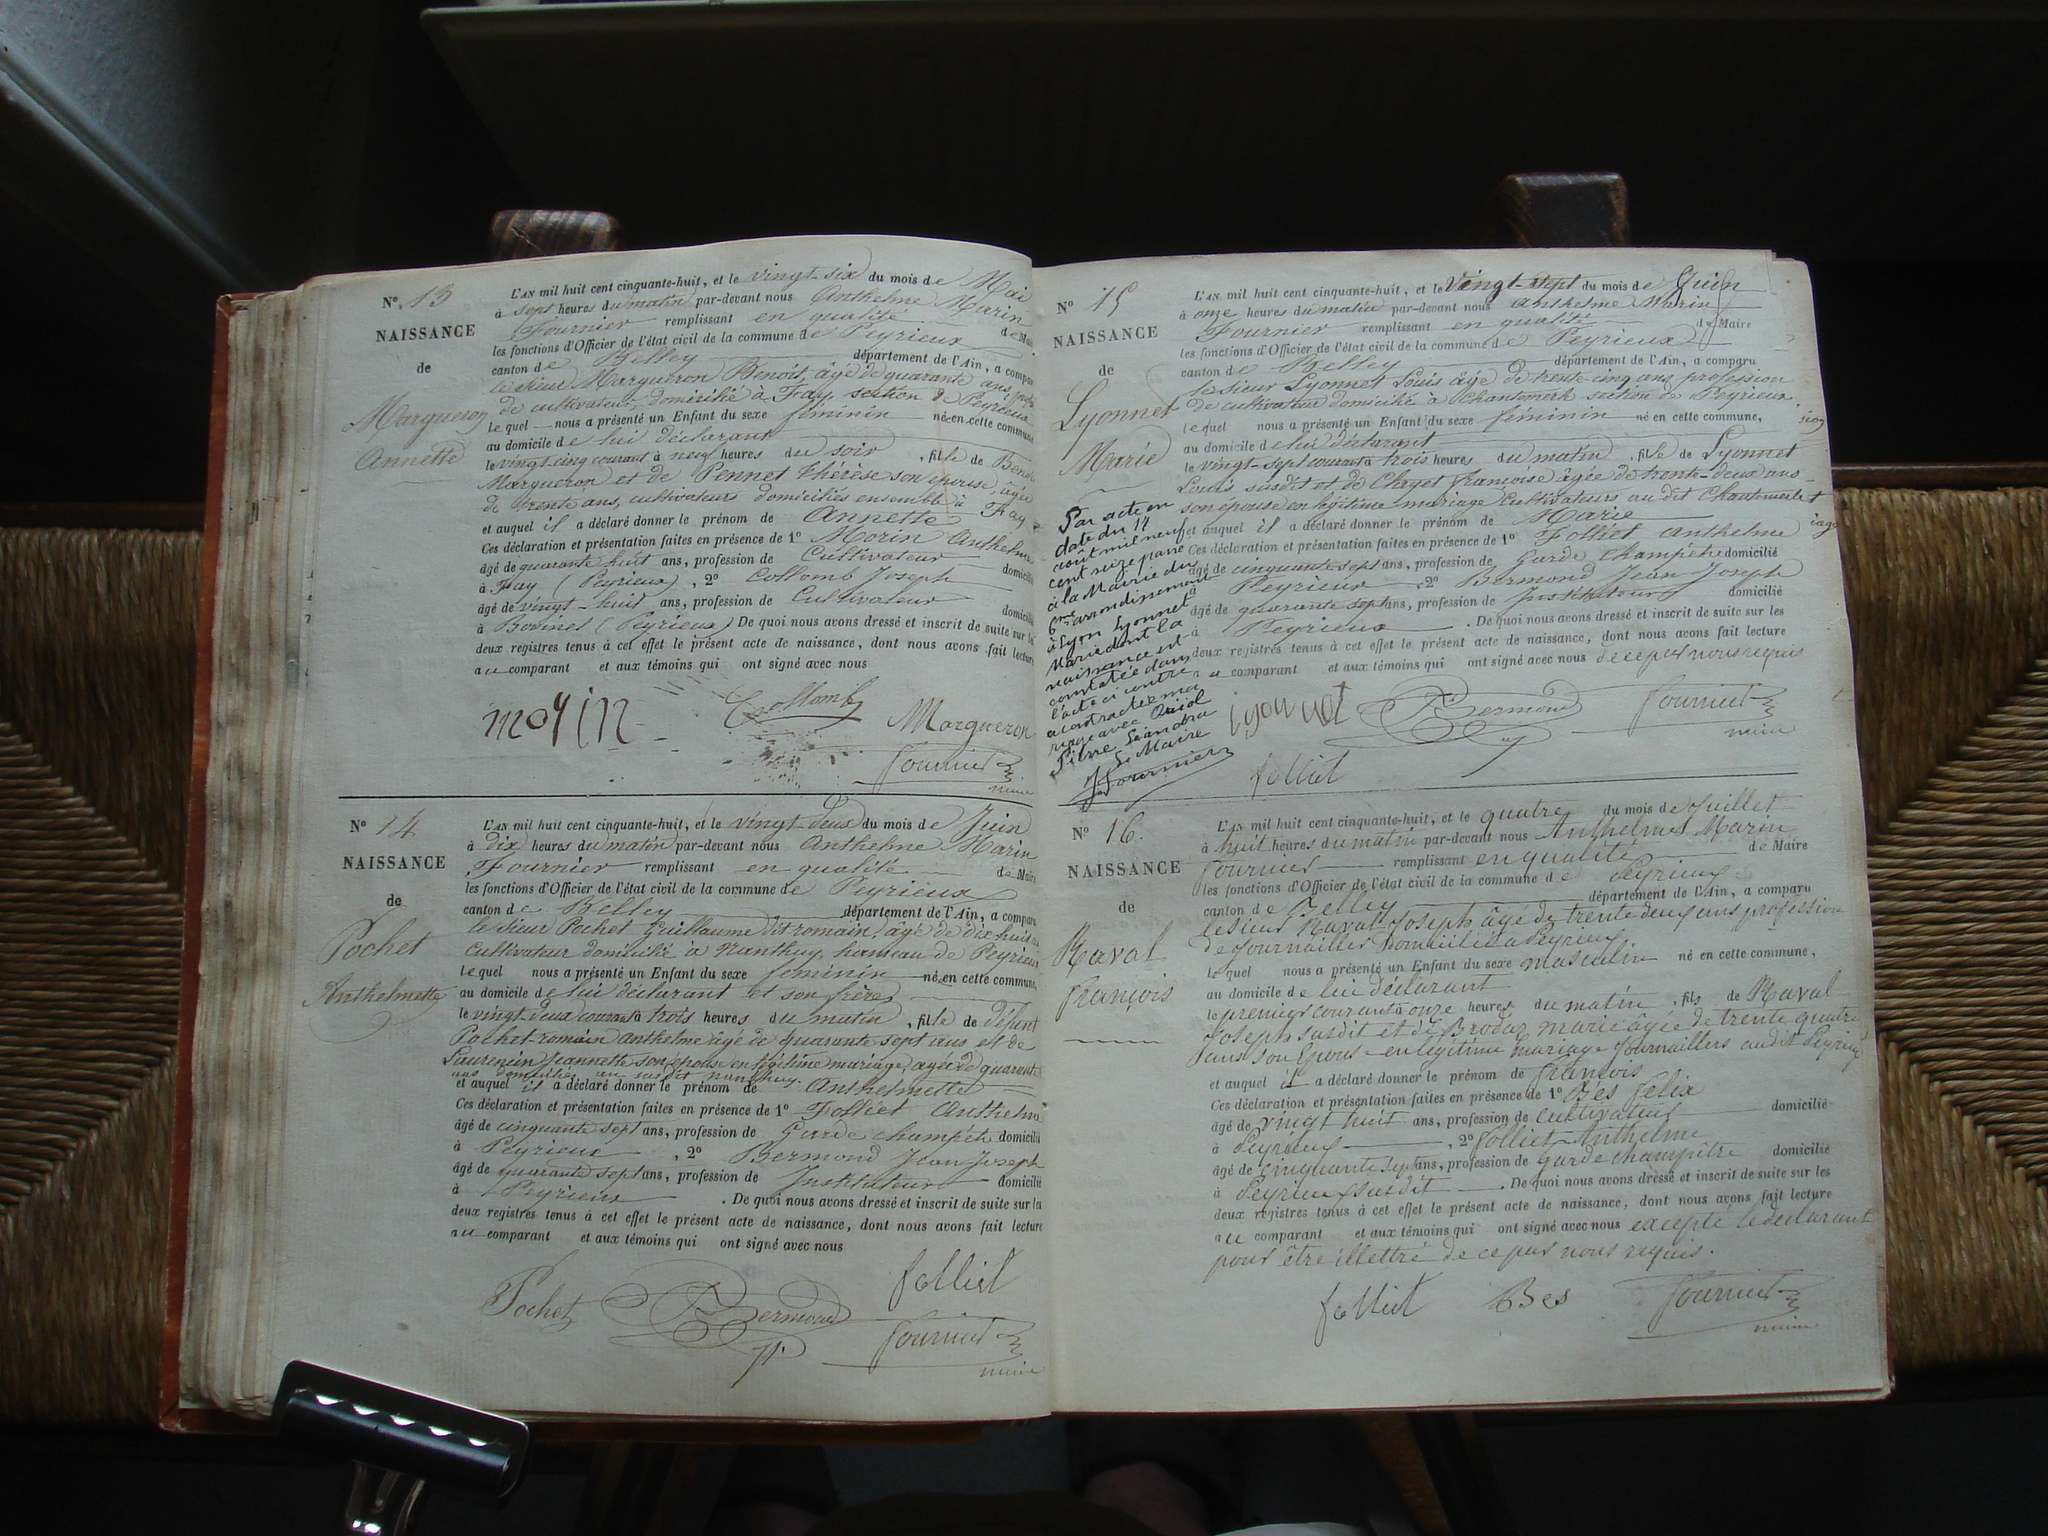 N°. 13
NAISSANCE
de
Margueron
Annette
L'AN mil huit cent cinquante-huit, et le vingt-six du mois de Mai
à sept heures du matin par-devant nous Anthelme Marin
Fournier remplissant en qualité de Maire
les fonctions d'Officier de l'état civil de la commune de Peyrieux
canton de Belley département de l'Ain, a comparu
le sieur Margueron Benoit, âgé de quarante ans,
de cultivateur domicilié à Fay section de Peyrieux
lequel nous a présenté un Enfant du sexe féminin né en cette commune
au domicile de lui déclarant
le vingt-cinq courant à neuf heures du soir, fille de Benoit
Margueron et de Pennet Thérèse son épouse, âgée
de trente ans, cultivateurs domiciliés ensemble à Fay
et auquel il a déclaré donner le prénom de Annette
Ces déclaration et présentation faites en présence de 1° Morin Anthelme
âgé de quarante huit ans, profession de Cultivateur domicilié
à Fay (Peyrieux), 2° Collomb Joseph
âgé de vingt-huit ans, profession de Cultivateur domicilié
à (Peyrieux) De quoi nous avons dressé et inscrit de suite sur les
deux registres tenus à cet effet le présent acte de naissance, dont nous avons fait lecture
au comparant et aux témoins qui ont signé avec nous
morin Collomb Margueron
Fournier
maire
N° 14
NAISSANCE
de
Pochet
Anthelmette
L'AN mil huit cent cinquante-huit, et le vingt-deux du mois de Juin
à dix heures du matin par-devant nous Anthelme Marin
Fournier remplissant en qualité de Maire
les fonctions d'Officier de l'état civil de la commune de Peyrieux
canton de Belley département de l'Ain, a comparu
le sieur Pochet Guillaume dit romain, âgé de dix huit
Cultivateur domicilié à Nanthuy, hameau de Peyrieux
lequel nous a présenté un Enfant du sexe féminin né en cette commune,
au domicile de lui déclarant et son frère
le vingt-deux courant à trois heures du matin, fille de défunt
Pochet romain Anthelme âgé de quarante sept ans et de
Laurencin Jeannette son épouse en légitime mariage, agée de quarante
ans domiciliés au susdit Nanthuy
et auquel il a déclaré donner le prénom de Anthelmette
Ces déclaration et présentation faites en présence de 1° Folliet Anthelme
âgé de cinquante sept ans, profession de Garde champêtre domicilié
à Peyrieux, 2° Bermond Jean Joseph
âgé de quarante sept ans, profession de Instituteur domicilié
à Peyrieux. De quoi nous avons dressé et inscrit de suite sur les
deux registres tenus à cet effet le présent acte de naissance, dont nous avons fait lecture
au comparant et aux témoins qui ont signé avec nous
folliet
Pochet Bermond Fournier
maire
N° 15
NAISSANCE
de
Lyonnet
Marie
Par acte en
date du 14
août mil neuf
cent seize passé
à la Mairie du
6me arrondissement
à Lyon Lyonnet
Marie dont la
naissance est
constatée dans
l'acte ci contre
a contracté ma
riage avec
Pierre Léandre
Le Maire
Fournier
L'AN mil huit cent cinquante-huit, et le vingt-sept du mois de Juin
à onze heures du matin par-devant nous Anthelme Marin
Fournier remplissant en qualité de Maire
les fonctions d'Officier de l'état civil de la commune de Peyrieux
canton de Belley département de l'Ain, a comparu
le sieur Lyonnet Louis âgé de trente-cinq ans profession
de cultivateur domicilié à Chantemerle section de Peyrieux
lequel nous a présenté un Enfant du sexe féminin né en cette commune,
au domicile de lui déclarant
le vingt-sept courant à trois heures du matin, fille de Lyonnet
Louis susdit et de Chapet françoise âgée de trente-deux ans
son épouse en légitime mariage Cultivateurs au dit Chantemerle
et auquel il a déclaré donner le prénom de Marie
Ces déclaration et présentation faites en présence de 1° Folliet Anthelme
âgé de cinquante sept ans, profession de Garde Champêtre domicilié
à Peyrieux, 2° Bermond Jean Joseph
âgé de quarante sept ans, profession de Instituteur domicilié
à Peyrieux. De quoi nous avons dressé et inscrit de suite sur les
deux registres tenus à cet effet le présent acte de naissance, dont nous avons fait lecture
au comparant et aux témoins qui ont signé avec nous de ce par nous requis
lyonnet Bermond Fournier
maire
folliet
N° 16.
NAISSANCE
de
Raval
françois
L'AN mil huit cent cinquante-huit, et le quatre du mois de Juillet
à huit heures du matin par-devant nous Anthelme Marin
fournier remplissant en qualité de Maire
les fonctions d'Officier de l'état civil de la commune de Peyrieux
canton de Belley département de l'Ain, a comparu
le sieur Raval Joseph âgé de trente deux ans profession
de Journaillier domicilié à Peyrieux
lequel nous a présenté un Enfant du sexe masculin né en cette commune,
au domicile de lui déclarant
le premier courant à onze heures du matin, fils de Raval
Joseph susdit et de Brodaz marie âgée de trente quatre
ans son épouse en légitime mariage Journailliers au dit Peyrieux
et auquel il a déclaré donner le prénom de françois
Ces déclaration et présentation faites en présence de 1° Bes felix
âgé de vingt huit ans, profession de cultivateur domicilié
à Peyrieux, 2° folliet Anthelme
âgé de cinquante sept ans, profession de garde champêtre domicilié
à Peyrieux susdit. De quoi nous avons dressé et inscrit de suite sur les
deux registres tenus à cet effet le présent acte de naissance, dont nous avons fait lecture
au comparant et aux témoins qui ont signé avec nous excepté le déclarant
pour être illettré de ce par nous requis.
folliet Bes Fournier
maire